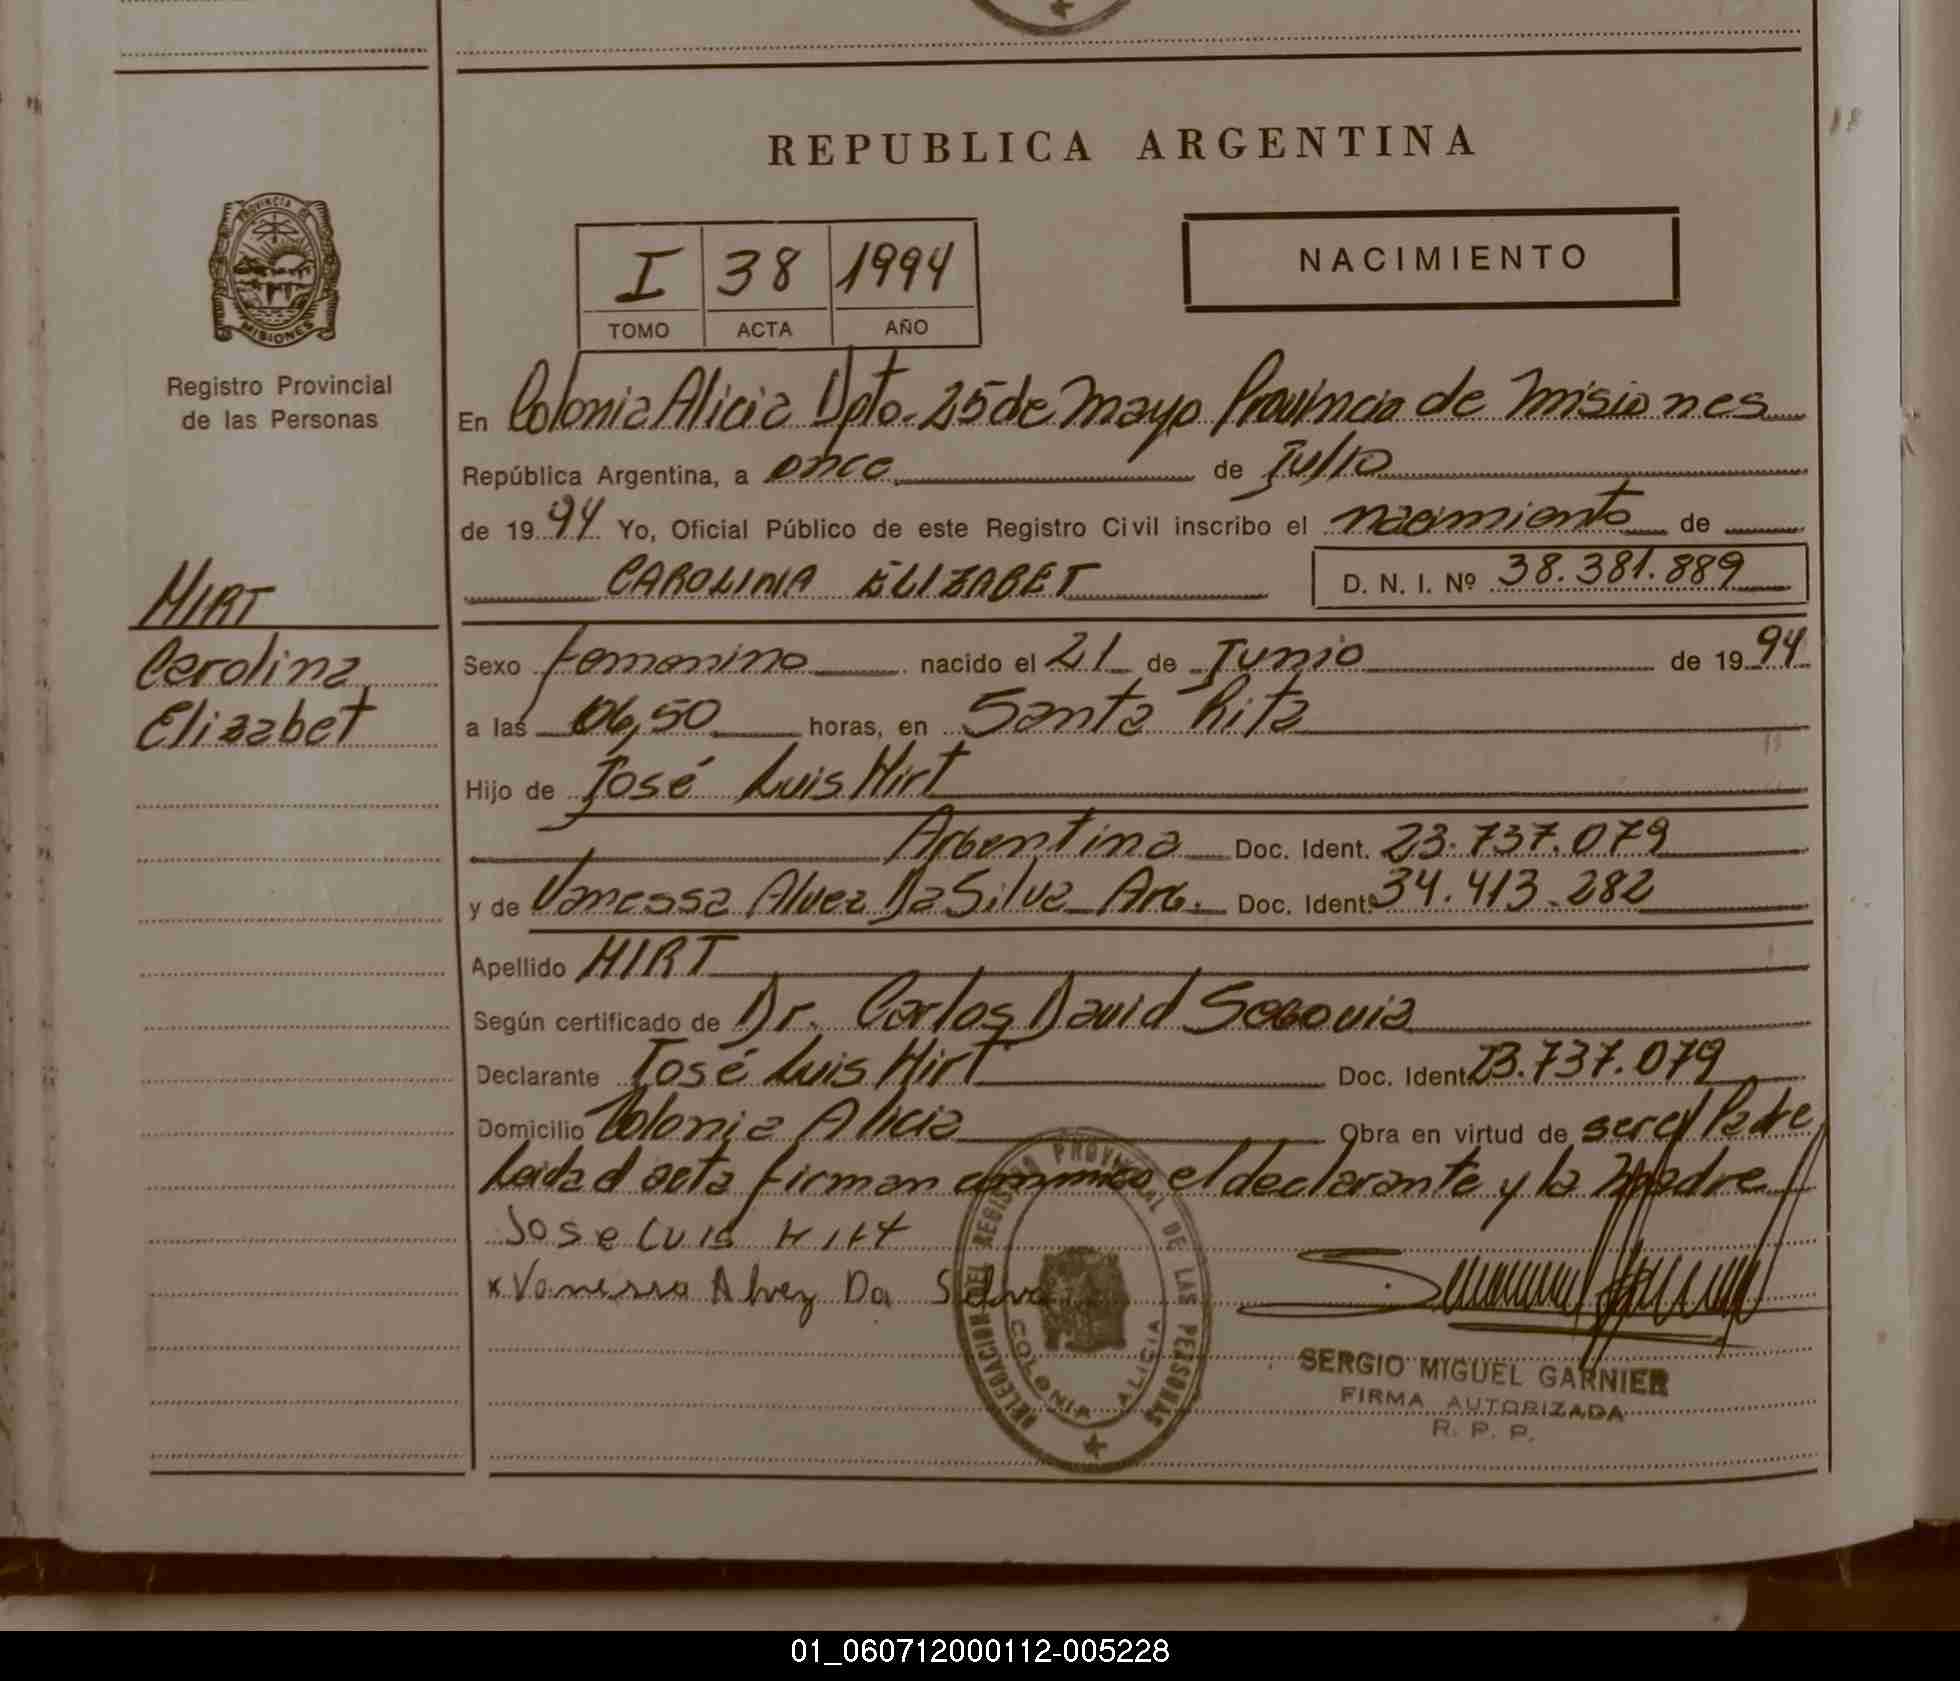 REPUBLICA ARGENTINA
PROVINCIA DE
MISIONES
Registro Provincial
de las Personas
I 38 1994
TOMO ACTA AÑO
NACIMIENTO
En Colonia Alicia Dpto. 25 de Mayo Provincia de Misiones
República Argentina, a once de Julio
de 1994 Yo, Oficial Público de este Registro Civil inscribo el nacimiento de
CAROLINA ELIZABET D. N. I. Nº 38.381.889
HIRT
Carolina
Elizabet
Sexo femenino nacido el 21 de Junio de 1994
a las 06,50 horas, en Santa Rita
Hijo de José Luis Hirt
Argentina Doc. Ident. 23.737.079
y de Vanessa Alvez Da Silva Arg. Doc. Ident. 34.413.282
Apellido HIRT
Según certificado de Dr. Carlos David Segovia
Declarante José Luis Hirt Doc. Ident. 23.737.079
Domicilio Colonia Alicia Obra en virtud de ser el Padre
Leida el acta firman conmigo el declarante y la Madre
Jose Luis Hirt
x Vanessa Alvez Da Silva
DELEGACION DEL REGISTRO PROVINCIAL DE LAS PERSONAS
COLONIA ALICIA
SERGIO MIGUEL GARNIER
FIRMA AUTORIZADA
R. P. P.
01_060712000112-005228